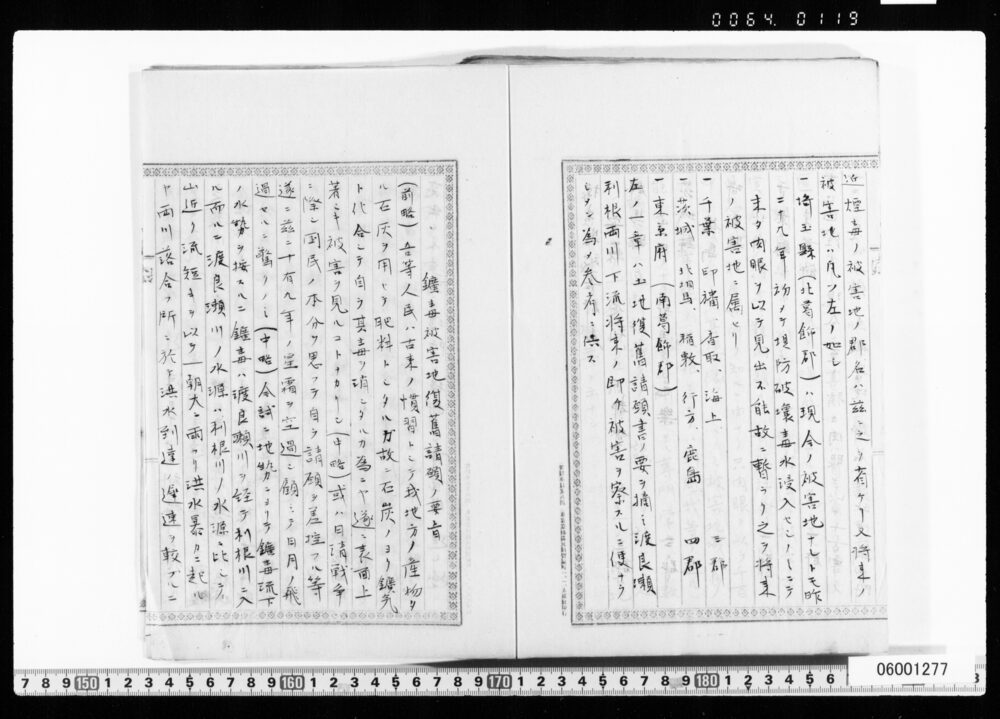 0064.0119
近シ煙毒ノ被害地ノ郡名ハ茲ニ之ヲ省ケリ又将来ノ
被害地ハ凡ソ左ノ如シ
一埼玉縣(北葛飾郡)ハ現今ノ被害地ナレトモ昨
二十九年初メテ堤防破壊毒水浸入セシノミニテ
未タ肉眼ヲ以テ見出不能故ニ暫ラク之ヲ将来
ノ被害地ニ属セリ
一千葉 印旛、香取、海上 三郡
一茨城 北相馬、稲敷、行方 鹿島 四郡
一東京府(南葛飾郡)
左ノ一章ハ土地復舊請願書ノ要ヲ摘ミ渡良瀬
利根両川下流将来ノ即ケ被害ヲ察スルニ便ナラ
シメン為メ参考ニ供ス
鑛毒被害地復舊請願ノ要旨
(前略)吾等人民ハ古来ノ慣習トシテ我地方ノ産物タ
ル石灰ヲ用ヒテ肥料トシタルガ故ニ石炭ノヨク鑛気
ト化合シテ自ラ其毒ヲ消シタルカ為ニヤ遂ニ表面上
著シキ被害ヲ見ルコトナカリシ(中略)或ハ日清戦争
ニ際シ国民ノ本分ヲ思フテ自ラ請願ヲ差控フル等
遂ニ茲ニ十有九年ノ星霜ヲ空過シ顧ミテ日月ノ飛
過セルニ驚クノミ(中略)今試ニ地勢ニヨリテ鑛毒流下
ノ水勢ヲ按スルニ鑛毒ハ渡良瀬川ヲ経テ利根川ニ入
ル而ルニ渡良瀬川ノ水源ハ利根川ノ水源ニ比シテ
山近ク流短キヲ以テ一朝大ニ雨フリ洪水暴カニ起ル
ヤ両川落合フ所ニ於ケ洪水到達ノ遅速ヲ較フルニ
06001277